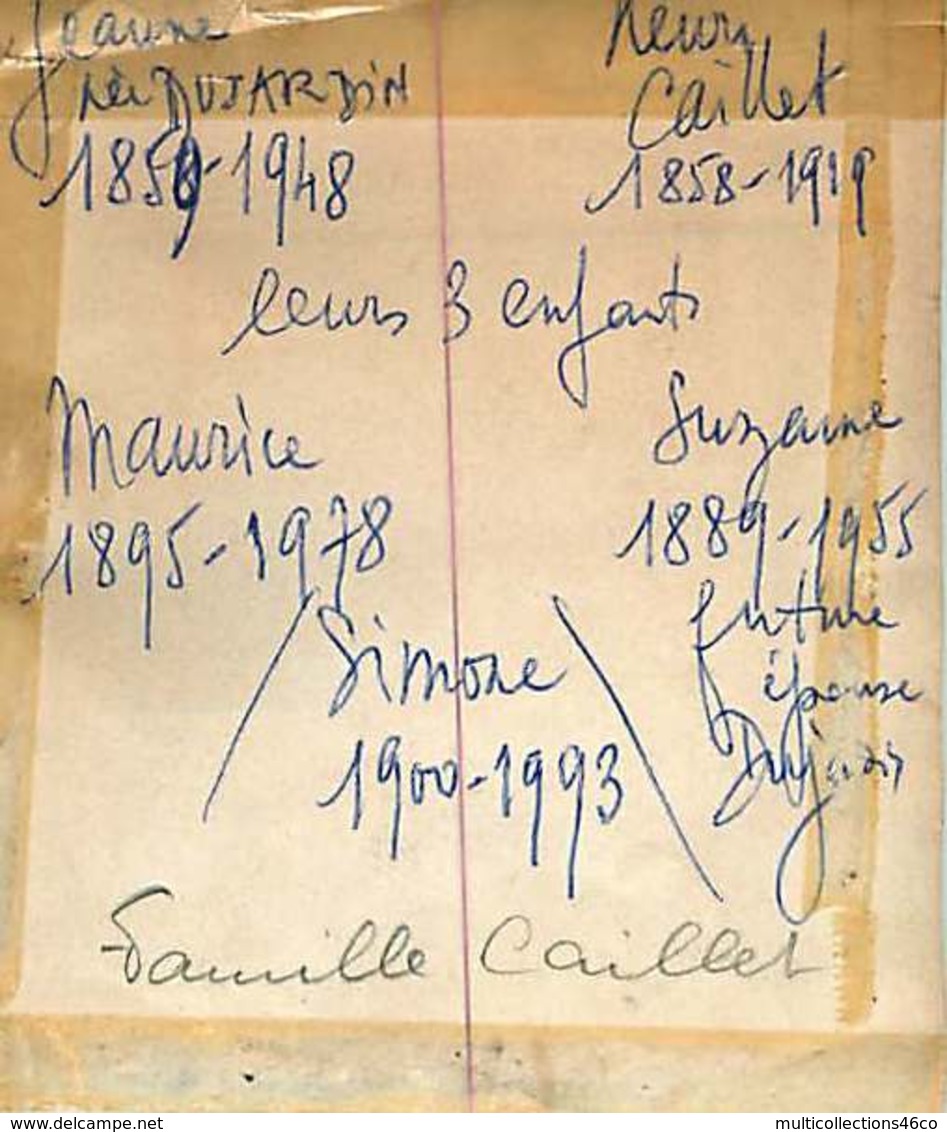 Jeanne
née DUJARDIN
1859-1948
Henri
Caillet
1858-1919
leurs 3 enfants
Maurice
1895-1978
Suzanne
1889-1955
future
épouse
Dujardin
Simone
1900-1993
Famille Caillet
www.delcampe.net
multicollections46co